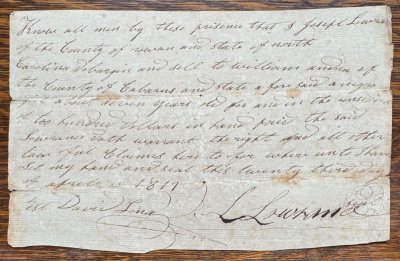 Know all men by these presence that I Joseph Lowrance
of the County of rowan and state of north
Carolina dbargan and sell to william andra of
the County of Cabarus and state a fore said a negro
girl about seven years old for and in the
of two hundred dollars in hand paid the said
Lowrance doth warrant the right and all other
law ful Claimes here to for where unto I have
Set my hand and seal this twenty third day
of april 1817
test David
J. L Lowrance seal